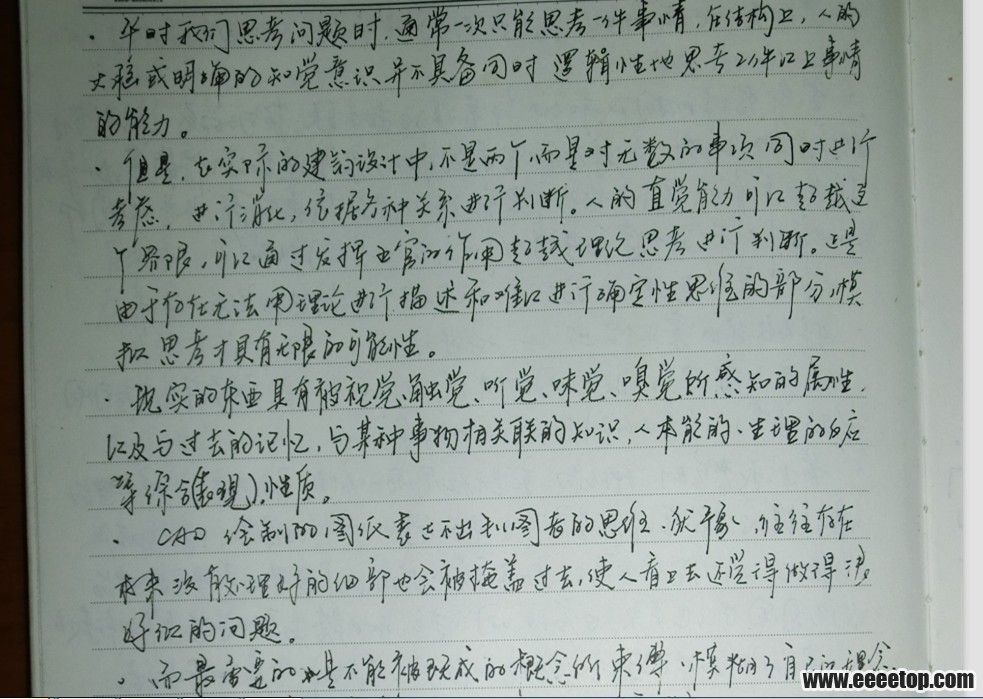 · 平时我们思考问题时，通常一次只能思考一件事情，在结构上，人的
大脑或明确的知觉意识并不具备同时逻辑性地思考2件以上事情
的能力。
· 但是，在实际的建筑设计中，不是两个，而是对无数的事项同时进行
考虑，进行消化，依据各种关系进行判断。人的直觉能力可以超越这
个界限，可以通过发挥五官的作用超越理论思考进行判断。正是
由于存在无法用理论进行描述和难以进行确定性思维的部分，模
拟思考才具有无限的可能性。
· 现实的东西具有被视觉、触觉、听觉、味觉、嗅觉所感知的属性，
以及与过去的记忆，与某种事物相关联的知识，人本能的、生理的反应
等综合(表现)性质。
· CAD 绘制的图纸表达不出制图者的思维、状态，往往存在
本来没有处理好的细部也会被掩盖过去，使人看上去还觉得做得很
好似的问题。
· 而最重要的是不能被现成的概念所束缚，模糊了自己的理念
www.eeeetop.com